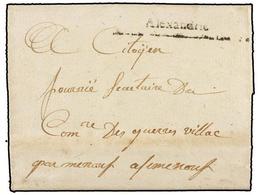 Alexandrie
Au Citoÿen
fourrié Secretaire Du
Com.re Des guerres villac
par menouf a simenouf